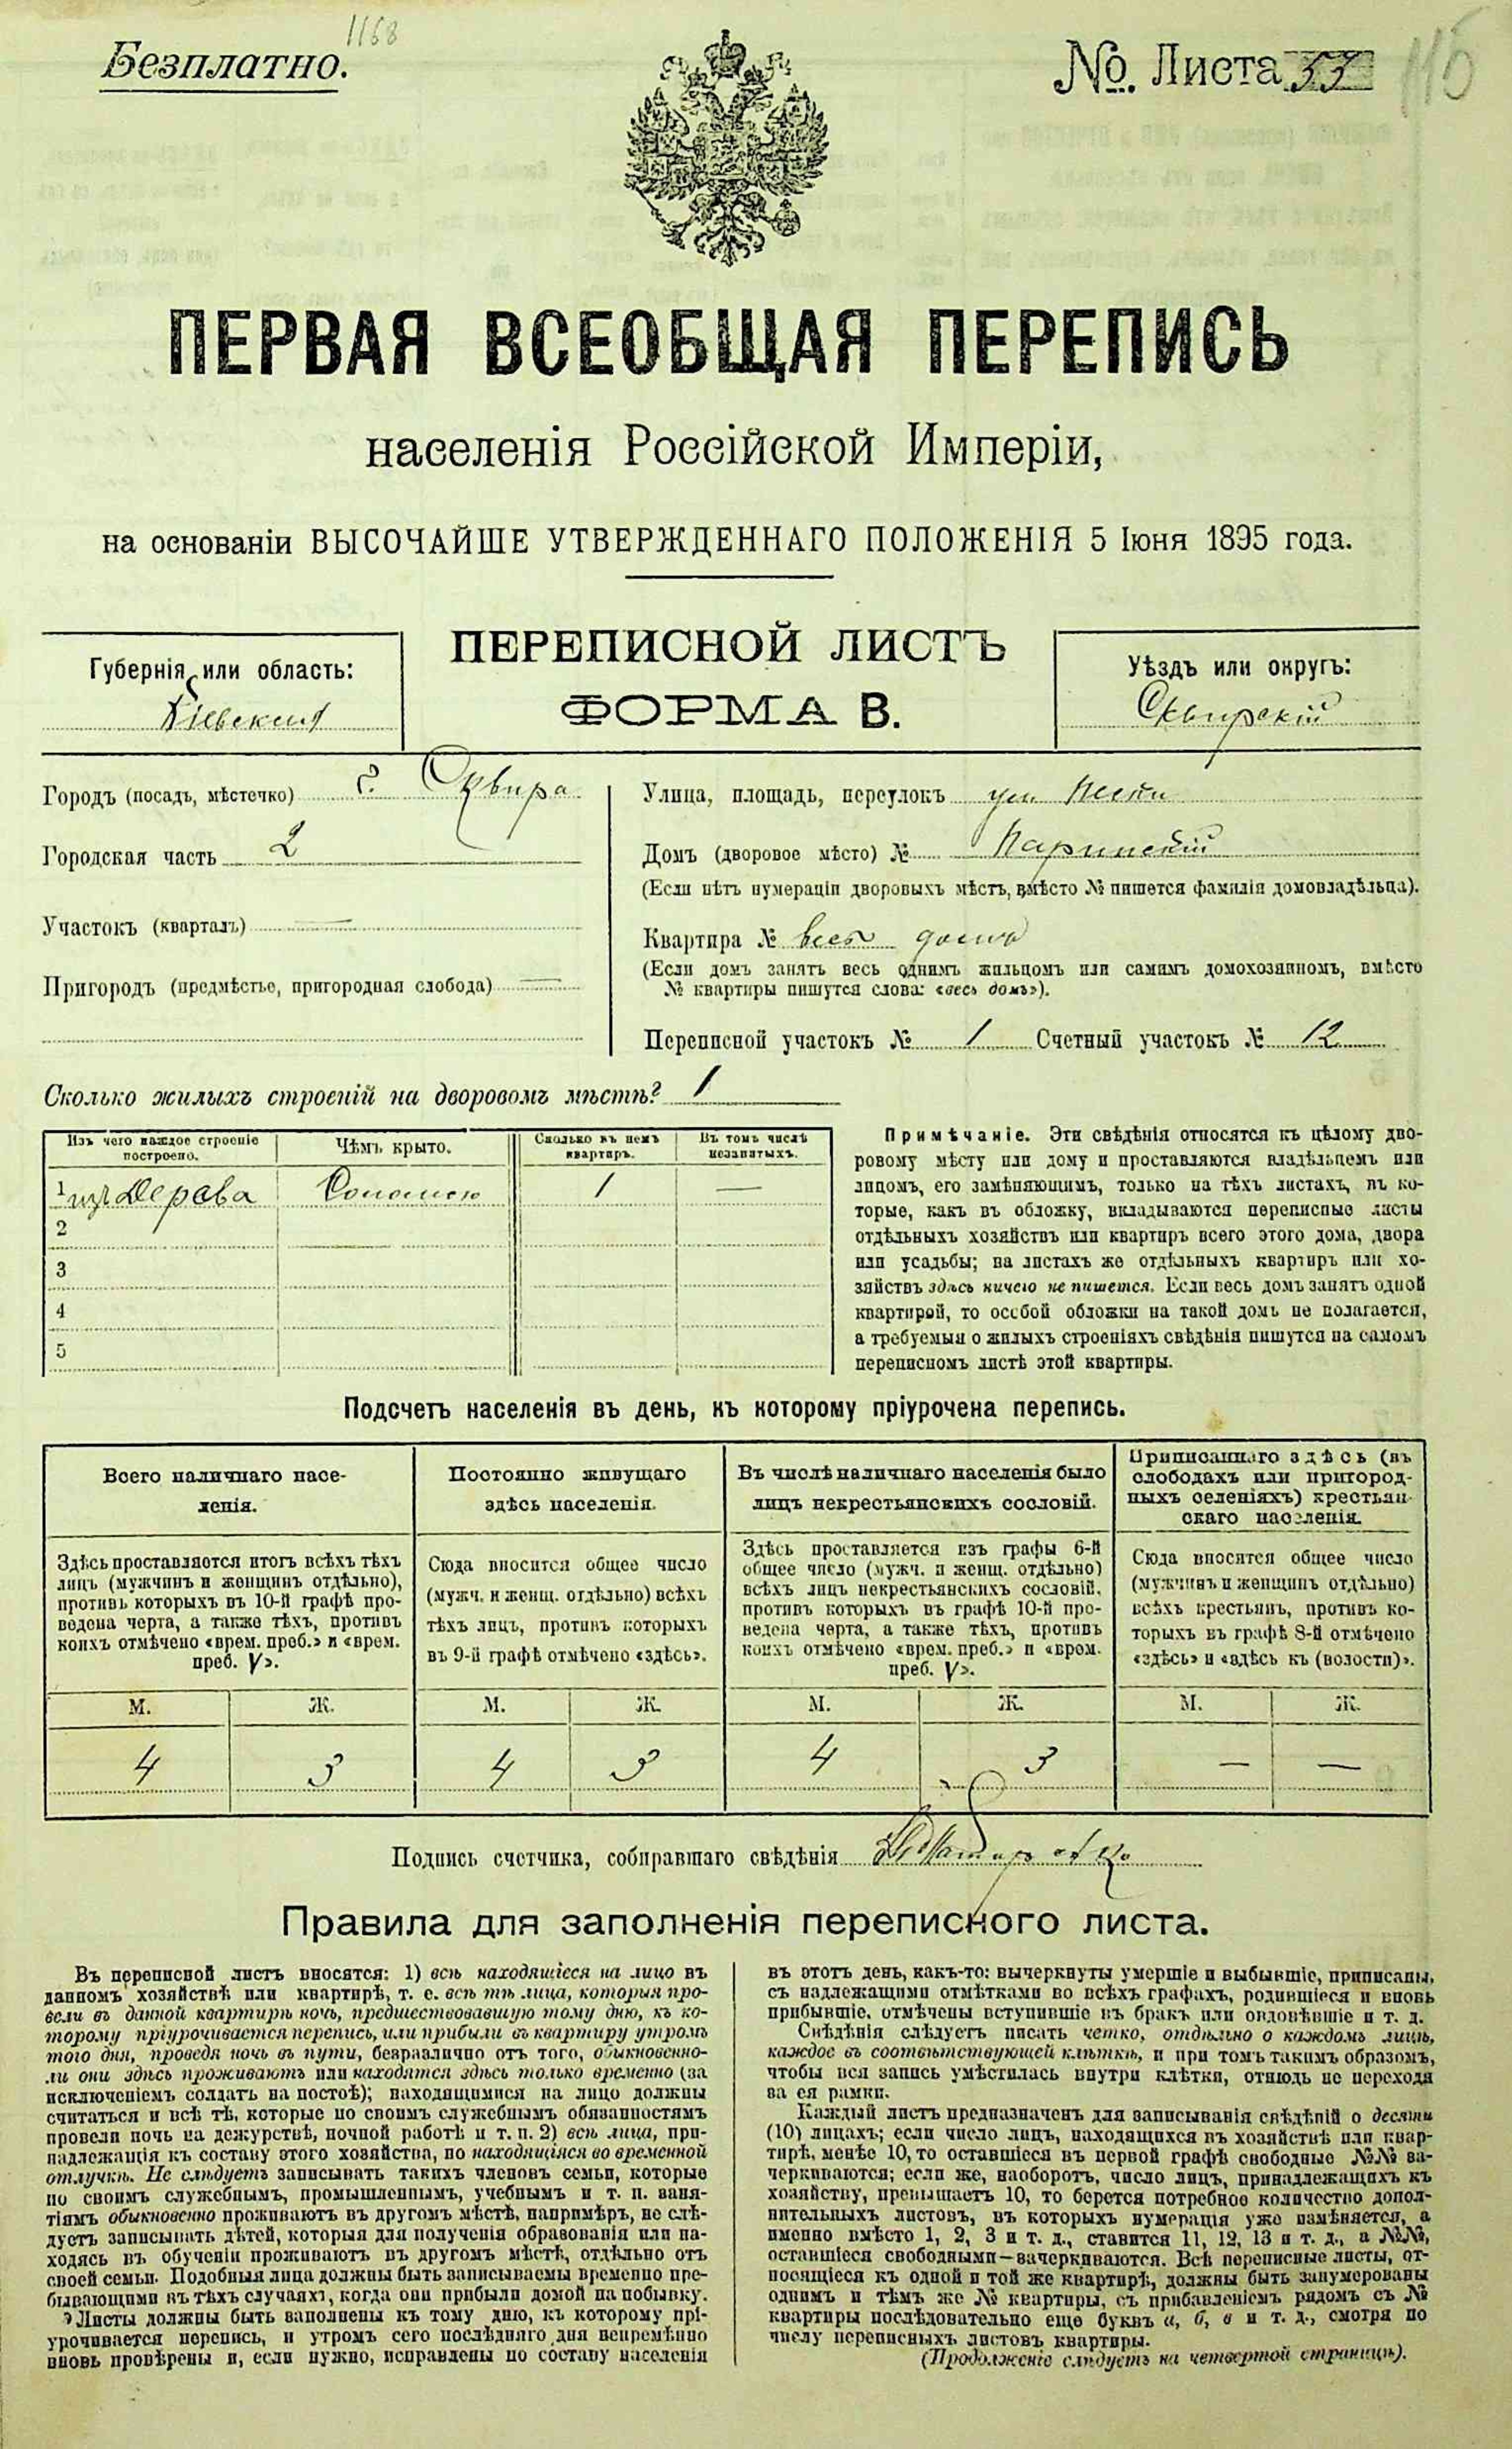 1168
Безплатно.
№ Листа 55
115
ПЕРВАЯ ВСЕОБЩАЯ ПЕРЕПИСЬ
населенія Россійской Имперіи,
на основаніи ВЫСОЧАЙШЕ УТВЕРЖДЕННАГО ПОЛОЖЕНІЯ 5 Іюня 1895 года.
ПЕРЕПИСНОЙ ЛИСТЪ
ФОРМА В.
Губернія или область:
Кіевская
Уѣздъ или округъ:
Сквирскій
Городъ (посадъ, мѣстечко) г. Сквира
Городская часть 2
Участокъ (кварталъ) —
Пригородъ (предмѣстье, пригородная слобода) —
Улица, площадь, переулокъ ул Пески
Домъ (дворовое мѣсто) №
(Если нѣтъ нумераціи дворовыхъ мѣстъ, вмѣсто № пишется фамилія домовладѣльца).
Квартира № весь домъ
(Если домъ занятъ весь однимъ жильцомъ или самимъ домохозяиномъ, вмѣсто
№ квартиры пишутся слова: «весь домъ»).
Переписной участокъ № 1 Счетный участокъ № 12
Сколько жилыхъ строеній на дворовомъ мѣстѣ? 1
Изъ чего каждое строеніе построено. Чѣмъ крыто. Сколько въ немъ квартиръ. Въ томъ числѣ незанятыхъ.
1 изъ Дерева Соломою 1 —
2
3
4
5
Примѣчаніе. Эти свѣдѣнія относятся къ цѣлому дво-
ровому мѣсту или дому и проставляются владѣльцемъ или
лицомъ, его замѣняющимъ, только на тѣхъ листахъ, въ ко-
торые, какъ въ обложку, вкладываются переписные листы
отдѣльныхъ хозяйствъ или квартиръ всего этого дома, двора
или усадьбы; на листахъ же отдѣльныхъ квартиръ или хо-
зяйствъ здѣсь ничего не пишется. Если весь домъ занятъ одной
квартирой, то особой обложки на такой домъ не полагается,
а требуемыя о жилыхъ строеніяхъ свѣдѣнія пишутся на самомъ
переписномъ листѣ этой квартиры.
Подсчетъ населенія въ день, къ которому пріурочена перепись.
Всего наличнаго насе-
ленія.
Здѣсь проставляются итогъ всѣхъ тѣхъ
лицъ (мужчинъ и женщинъ отдѣльно),
противъ которыхъ въ 10-й графѣ про-
ведена черта, а также тѣхъ, противъ
коихъ отмѣчено «врем. преб.» и «врем.
преб. V».
Постоянно живущаго
здѣсь населенія.
Сюда вносится общее число
(мужч. и женщ. отдѣльно) всѣхъ
тѣхъ лицъ, противъ которыхъ
въ 9-й графѣ отмѣчено «здѣсь».
Въ числѣ наличнаго населенія было
лицъ некрестьянскихъ сословій.
Здѣсь проставляется изъ графы 6-й
общее число (мужч. и женщ. отдѣльно)
всѣхъ лицъ некрестьянскихъ сословій,
противъ которыхъ въ графѣ 10-й про-
ведена черта, а также тѣхъ, противъ
коихъ отмѣчено «врем. преб.» и «врем.
преб. V».
Приписаннаго здѣсь (въ
слободахъ или пригород-
ныхъ селеніяхъ) крестьян-
скаго населенія.
Сюда вносятся общее число
(мужчинъ и женщинъ отдѣльно)
всѣхъ крестьянъ, противъ ко-
торыхъ въ графѣ 8-й отмѣчено
«здѣсь» и «здѣсь къ (волости)».
М. Ж. М. Ж. М. Ж. М. Ж.
4 3 4 3 4 3 — —
Подпись счетчика, собиравшаго свѣдѣнія
Правила для заполненія переписного листа.
Въ переписной листъ вносятся: 1) всѣ находящіеся на лицо въ
данномъ хозяйствѣ или квартирѣ, т. е. всѣ тѣ лица, которыя про-
вели въ данной квартирѣ ночь, предшествовавшую тому дню, къ ко-
торому пріурочивается перепись, или прибыли въ квартиру утромъ
того дня, проведя ночь въ пути, безразлично отъ того, обыкновенно-
ли они здѣсь проживаютъ или находятся здѣсь только временно (за
исключеніемъ солдатъ на постоѣ); находящимися на лицо должны
считаться и всѣ тѣ, которые по своимъ служебнымъ обязанностямъ
провели ночь на дежурствѣ, ночной работѣ и т. п. 2) всѣ лица, при-
надлежащія къ составу этого хозяйства, но находящіяся во временной
отлучкѣ. Не слѣдуетъ записывать такихъ членовъ семьи, которые
по своимъ служебнымъ, промышленнымъ, учебнымъ и т. п. заня-
тіямъ обыкновенно проживаютъ въ другомъ мѣстѣ, напримѣръ, не слѣ-
дуетъ записывать дѣтей, которыя для полученія образованія или на-
ходясь въ обученіи проживаютъ въ другомъ мѣстѣ, отдѣльно отъ
своей семьи. Подобныя лица должны быть записываемы временно пре-
бывающими въ тѣхъ случаяхъ, когда они прибыли домой на побывку.
Листы должны быть заполнены къ тому дню, къ которому прі-
урочивается перепись, и утромъ сего послѣдняго дня непремѣнно
вновь провѣрены и, если нужно, исправлены по составу населенія
въ этотъ день, какъ-то: вычеркнуты умершіе и выбывшіе, приписаны,
съ надлежащими отмѣтками во всѣхъ графахъ, родившіеся и вновь
прибывшіе, отмѣчены вступившіе въ бракъ или овдовѣвшіе и т. д.
Свѣдѣнія слѣдуетъ писать четко, отдѣльно о каждомъ лицѣ,
каждое въ соотвѣтствующей клѣткѣ, и при томъ такимъ образомъ,
чтобы вся запись умѣстилась внутри клѣтки, отнюдь не переходя
за ея рамки.
Каждый листъ предназначенъ для записыванія свѣдѣній о десяти
(10) лицахъ; если число лицъ, находящихся въ хозяйствѣ или квар-
тирѣ, менѣе 10, то оставшіеся въ первой графѣ свободные №№ за-
черкиваются; если же, наоборотъ, число лицъ, принадлежащихъ къ
хозяйству, превышаетъ 10, то берется потребное количество допол-
нительныхъ листовъ, въ которыхъ нумерація уже измѣняется, а
именно вмѣсто 1, 2, 3 и т. д., ставится 11, 12, 13 и т. д., а №№,
оставшіеся свободными—зачеркиваются. Всѣ переписные листы, от-
носящіеся къ одной и той же квартирѣ, должны быть занумерованы
однимъ и тѣмъ же № квартиры, съ прибавленіемъ рядомъ съ №
квартиры послѣдовательно еще буквъ а, б, в и т. д., смотря по
числу переписныхъ листовъ квартиры.
(Продолженіе слѣдуетъ на четвертой страницѣ).